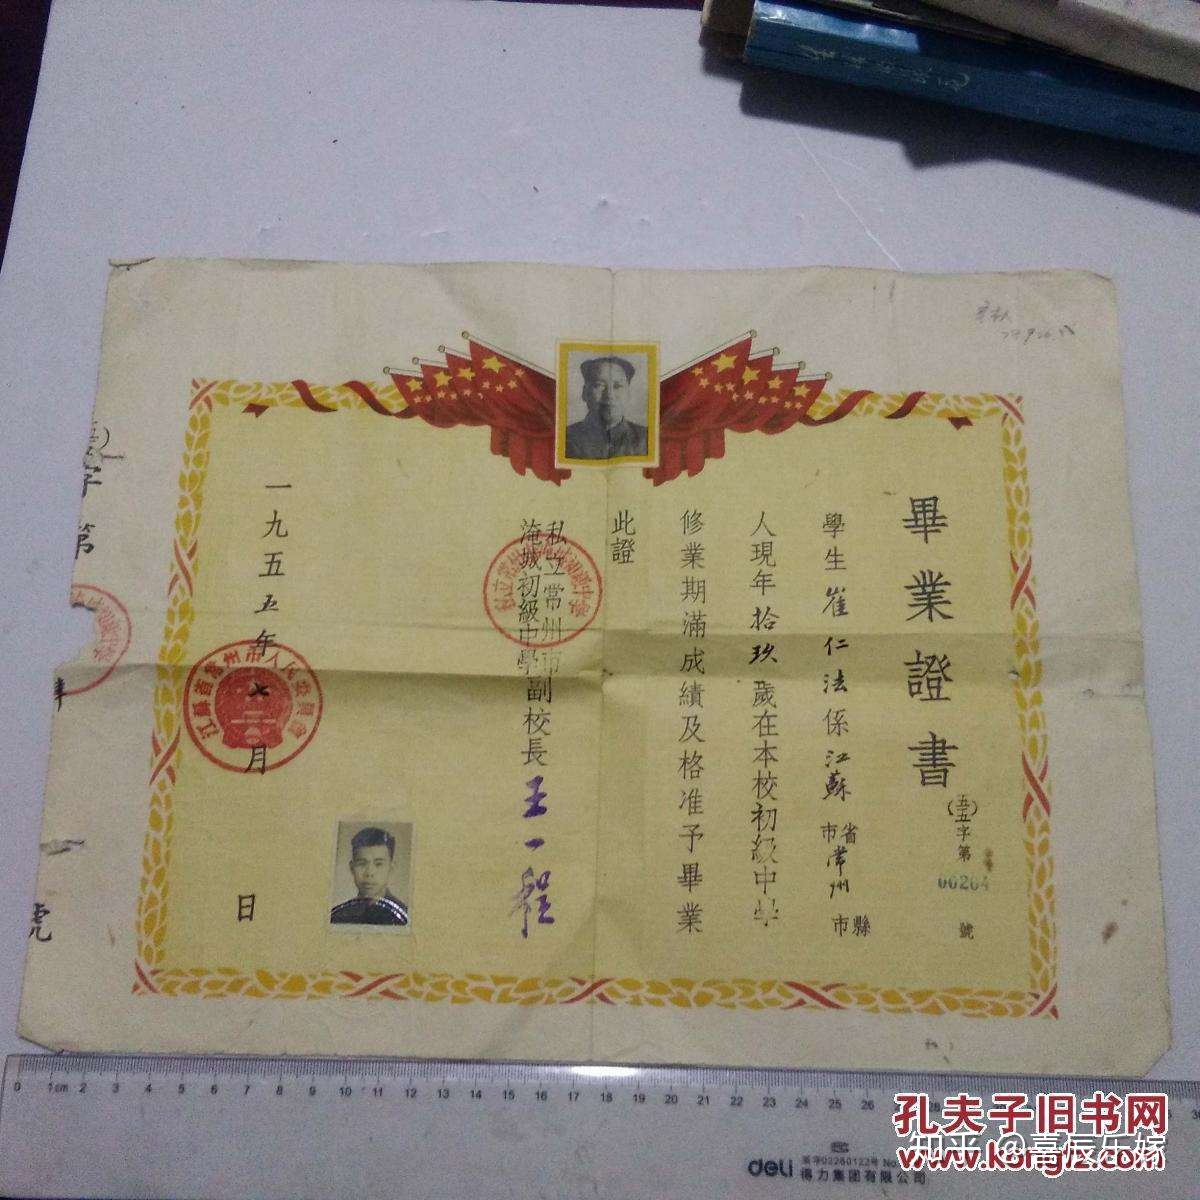 畢業證書
(五五)字第
00204
號
學生崔仁法係江蘇省市常州縣市
人現年拾玖歲在本校初級中学
修業期滿成績及格准予畢業
此證
私立常州市
淹城初級中學副校長王一程
一九五五年七月
日
江蘇省常州市人民委員會
字第
號
0 1cm 2 3 4 5 6 7 8 9 10 11 12 13 14 15 16 17 18 19 20 21 22 23 24 25 26
deli
得力集团有限公司
孔夫子旧书网
www.kongfz.com
知乎 @嘉辰乐嫁